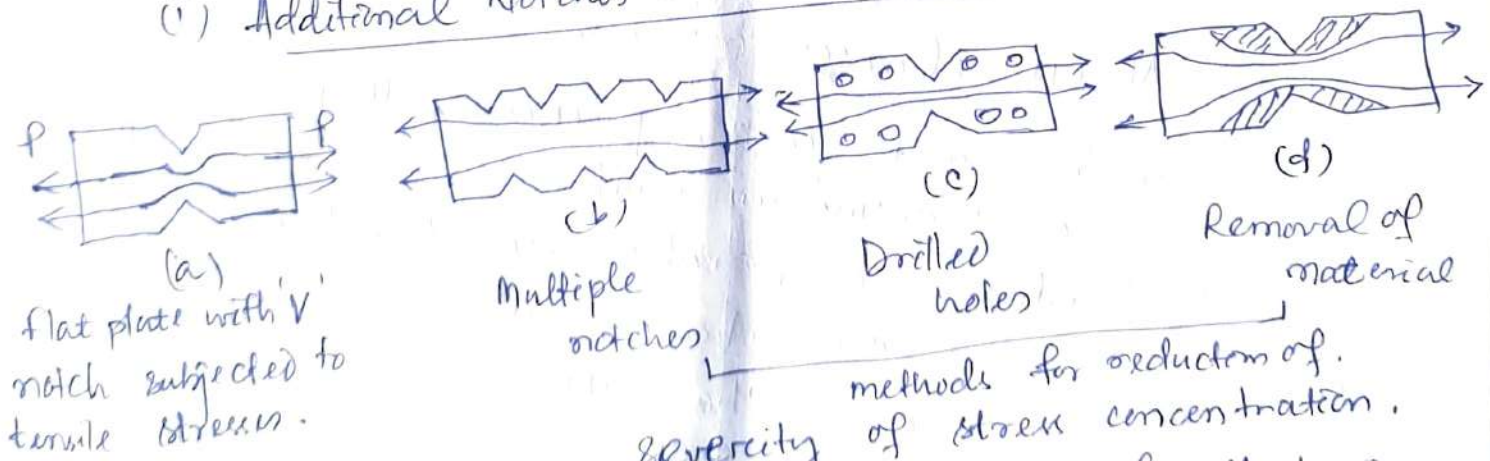 (1) Additional
P P
(a)
flat plate with 'V'
notch subjected to
tensile stresses.
(b)
Multiple
notches
(c)
Drilled
holes
(d)
Removal of
material
methods for reduction of.
severcity of stress concentration.